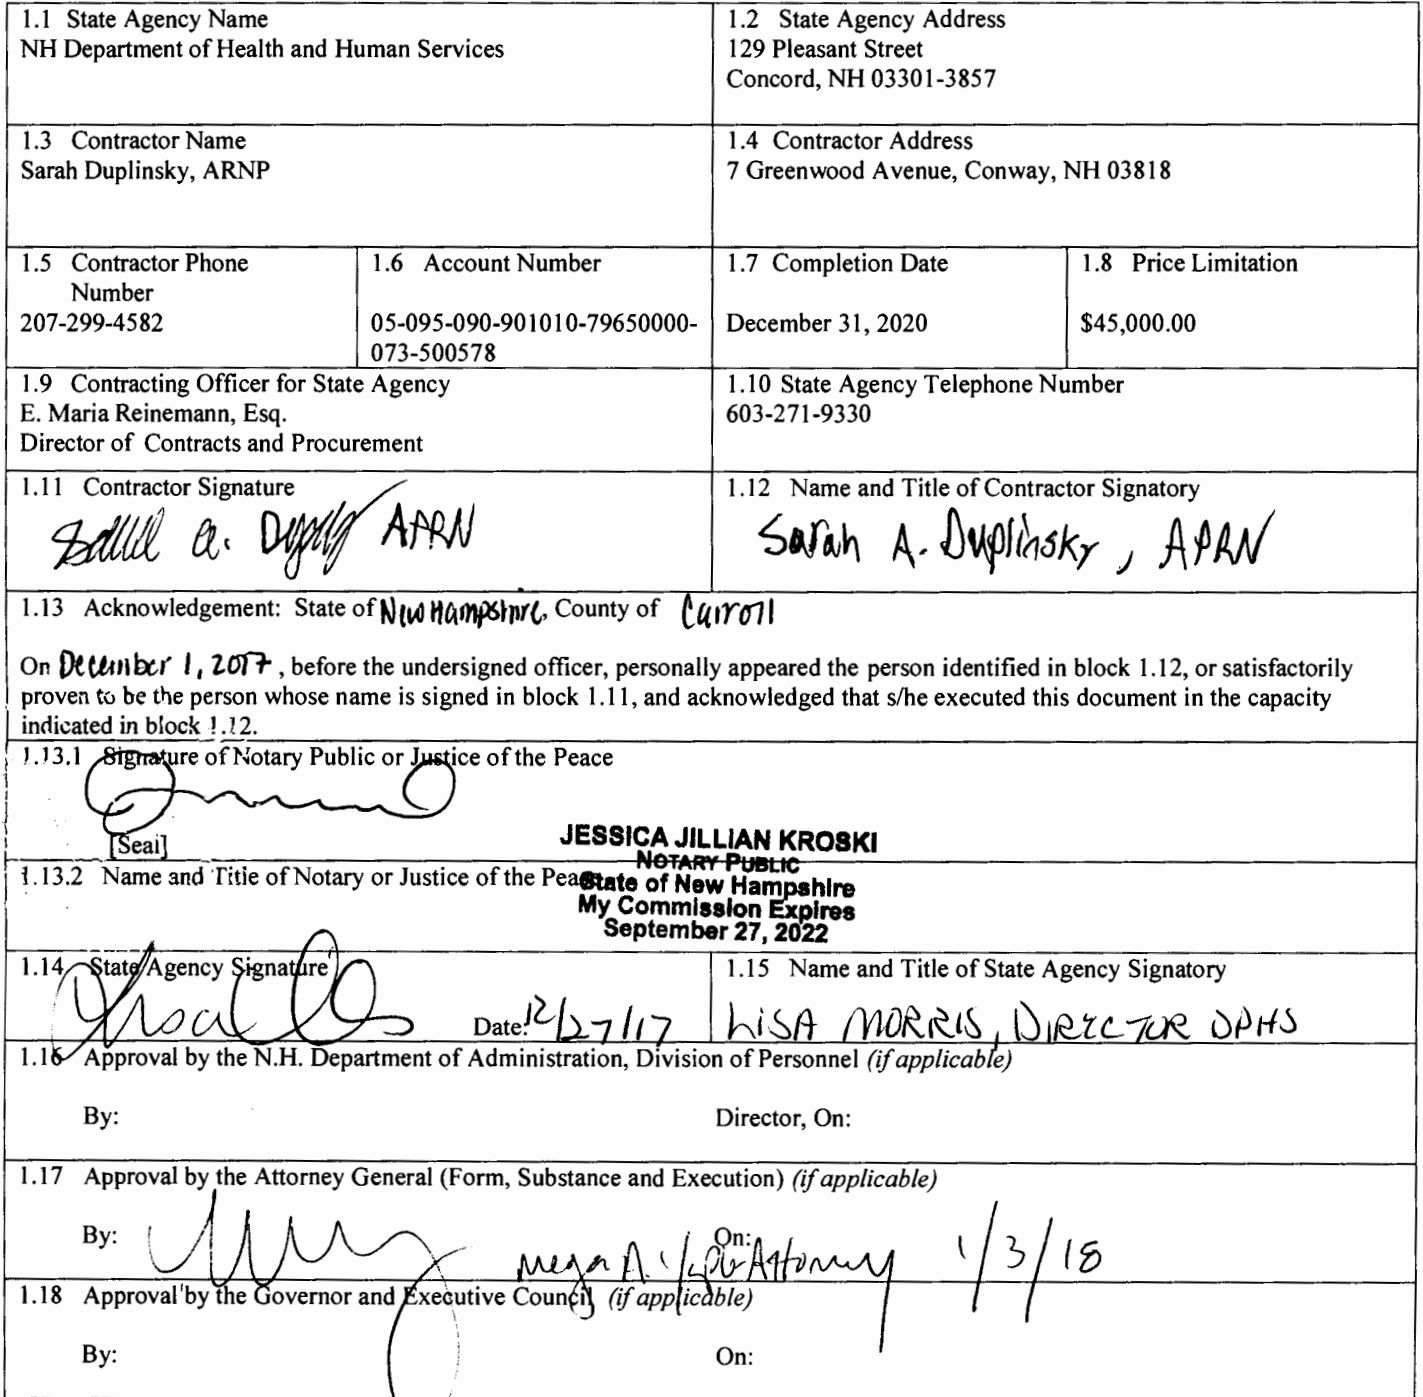 1.1 State Agency Name
NH Department of Health and Human Services
1.2 State Agency Address
129 Pleasant Street
Concord, NH 03301-3857
1.3 Contractor Name
Sarah Duplinsky, ARNP
1.4 Contractor Address
7 Greenwood Avenue, Conway, NH 03818
1.5 Contractor Phone
Number
207-299-4582
1.6 Account Number
05-095-090-901010-79650000-
073-500578
1.7 Completion Date
December 31, 2020
1.8 Price Limitation
$45,000.00
1.9 Contracting Officer for State Agency
E. Maria Reinemann, Esq.
Director of Contracts and Procurement
1.10 State Agency Telephone Number
603-271-9330
1.11 Contractor Signature
A. APRN
1.12 Name and Title of Contractor Signatory
Sarah A. Duplinsky, APRN
1.13 Acknowledgement: State of New Hampshire, County of Carroll
On December 1, 2017, before the undersigned officer, personally appeared the person identified in block 1.12, or satisfactorily
proven to be the person whose name is signed in block 1.11, and acknowledged that s/he executed this document in the capacity
indicated in block 1.12.
1.13.1 Signature of Notary Public or Justice of the Peace
[Seal]
JESSICA JILLIAN KROSKI
NOTARY PUBLIC
1.13.2 Name and Title of Notary or Justice of the Peace
State of New Hampshire
My Commission Expires
September 27, 2022
1.14 State Agency Signature
Date: 12/27/17
1.15 Name and Title of State Agency Signatory
LISA MORRIS, DIRECTOR DPHS
1.16 Approval by the N.H. Department of Administration, Division of Personnel (if applicable)
By: Director, On:
1.17 Approval by the Attorney General (Form, Substance and Execution) (if applicable)
By: On: Attorney 1/3/18
1.18 Approval by the Governor and Executive Council (if applicable)
By: On: